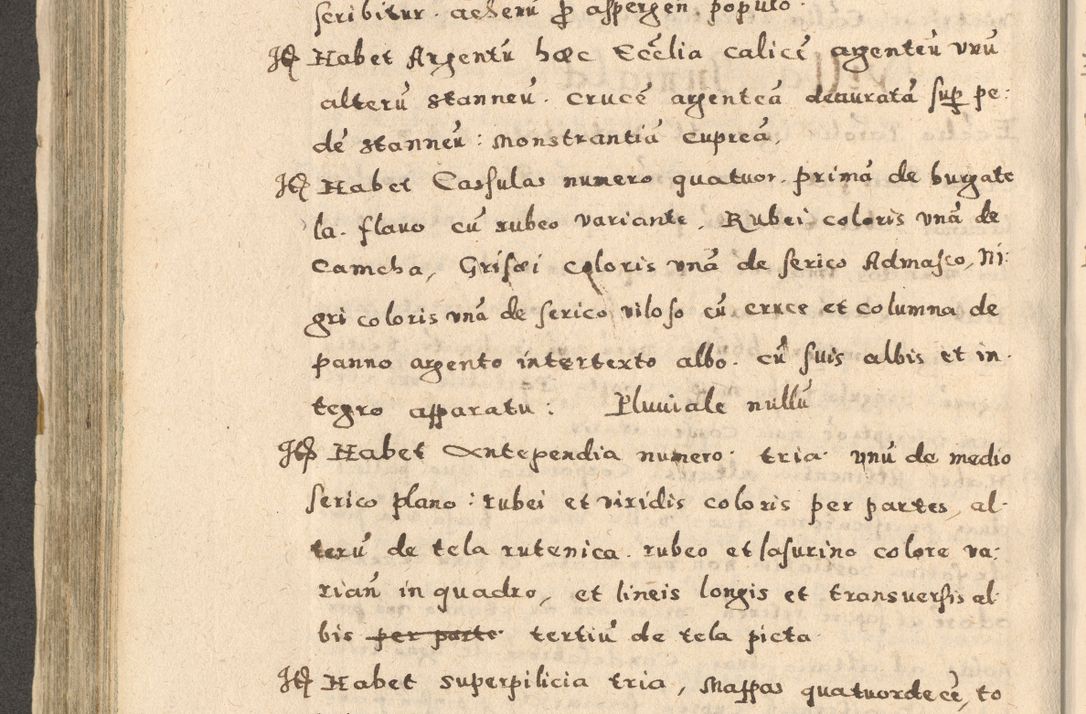 scribitur alterū ꝑ aspergen populo.
Itē Habet Argentū hæc Ecclīa calicē argenteū unū
alterū stanneū. crucē argenteā deauratā sup pe:
dē stanneū: Monstrantiā cupreā,
Itē Habet Cassulas numero quatuor. primā de burgate
la. flavo cū rubeo variante, Rubei coloris unā de
Camcha, Grisæi coloris unā de serico Admasco, Ni:
gri coloris unā de serico viloso cū cruce et columna de
panno argento intertexto albo. cū suis albis et in.
tegro apparatu: Pluviale nullū
Itē Habet Antependia numero: tria. unū de medio
serico plano: rubei et viridis coloris per partes, al-
terū de tela rutenica. rubeo et lasurino colore va-
rianū in quadro, et lineis longis et transversis al-
bis per parte tertiū de tela picta
Itē Habet superpilicia tria, Mappas quatuordecē, to